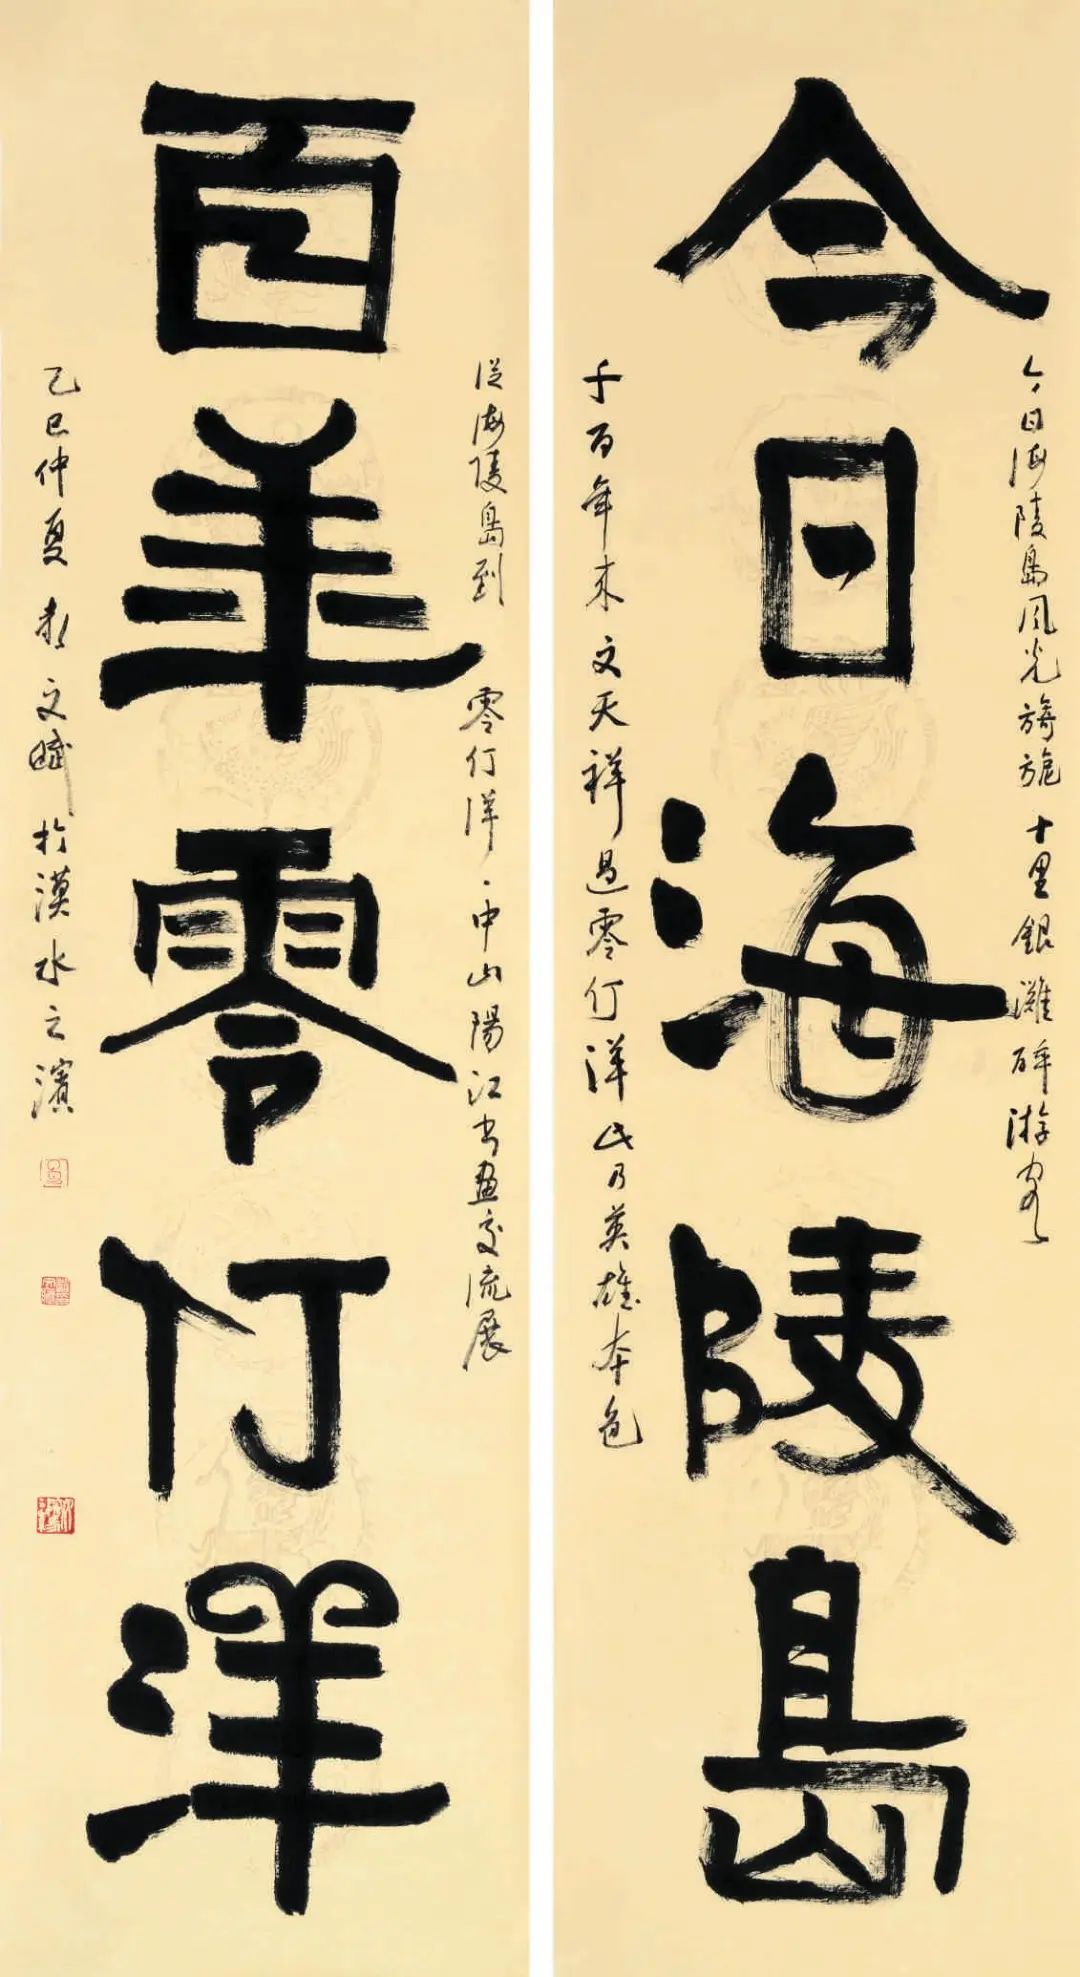 今日海陵島
今日海陵島風光旖旎十里銀灘醉游客
千百年來文天祥過零仃洋此乃英雄本色
百年零仃洋
從海陵島到零仃洋·中山陽江书畫交流展
乙巳仲夏 敖文賦於漠水之濱